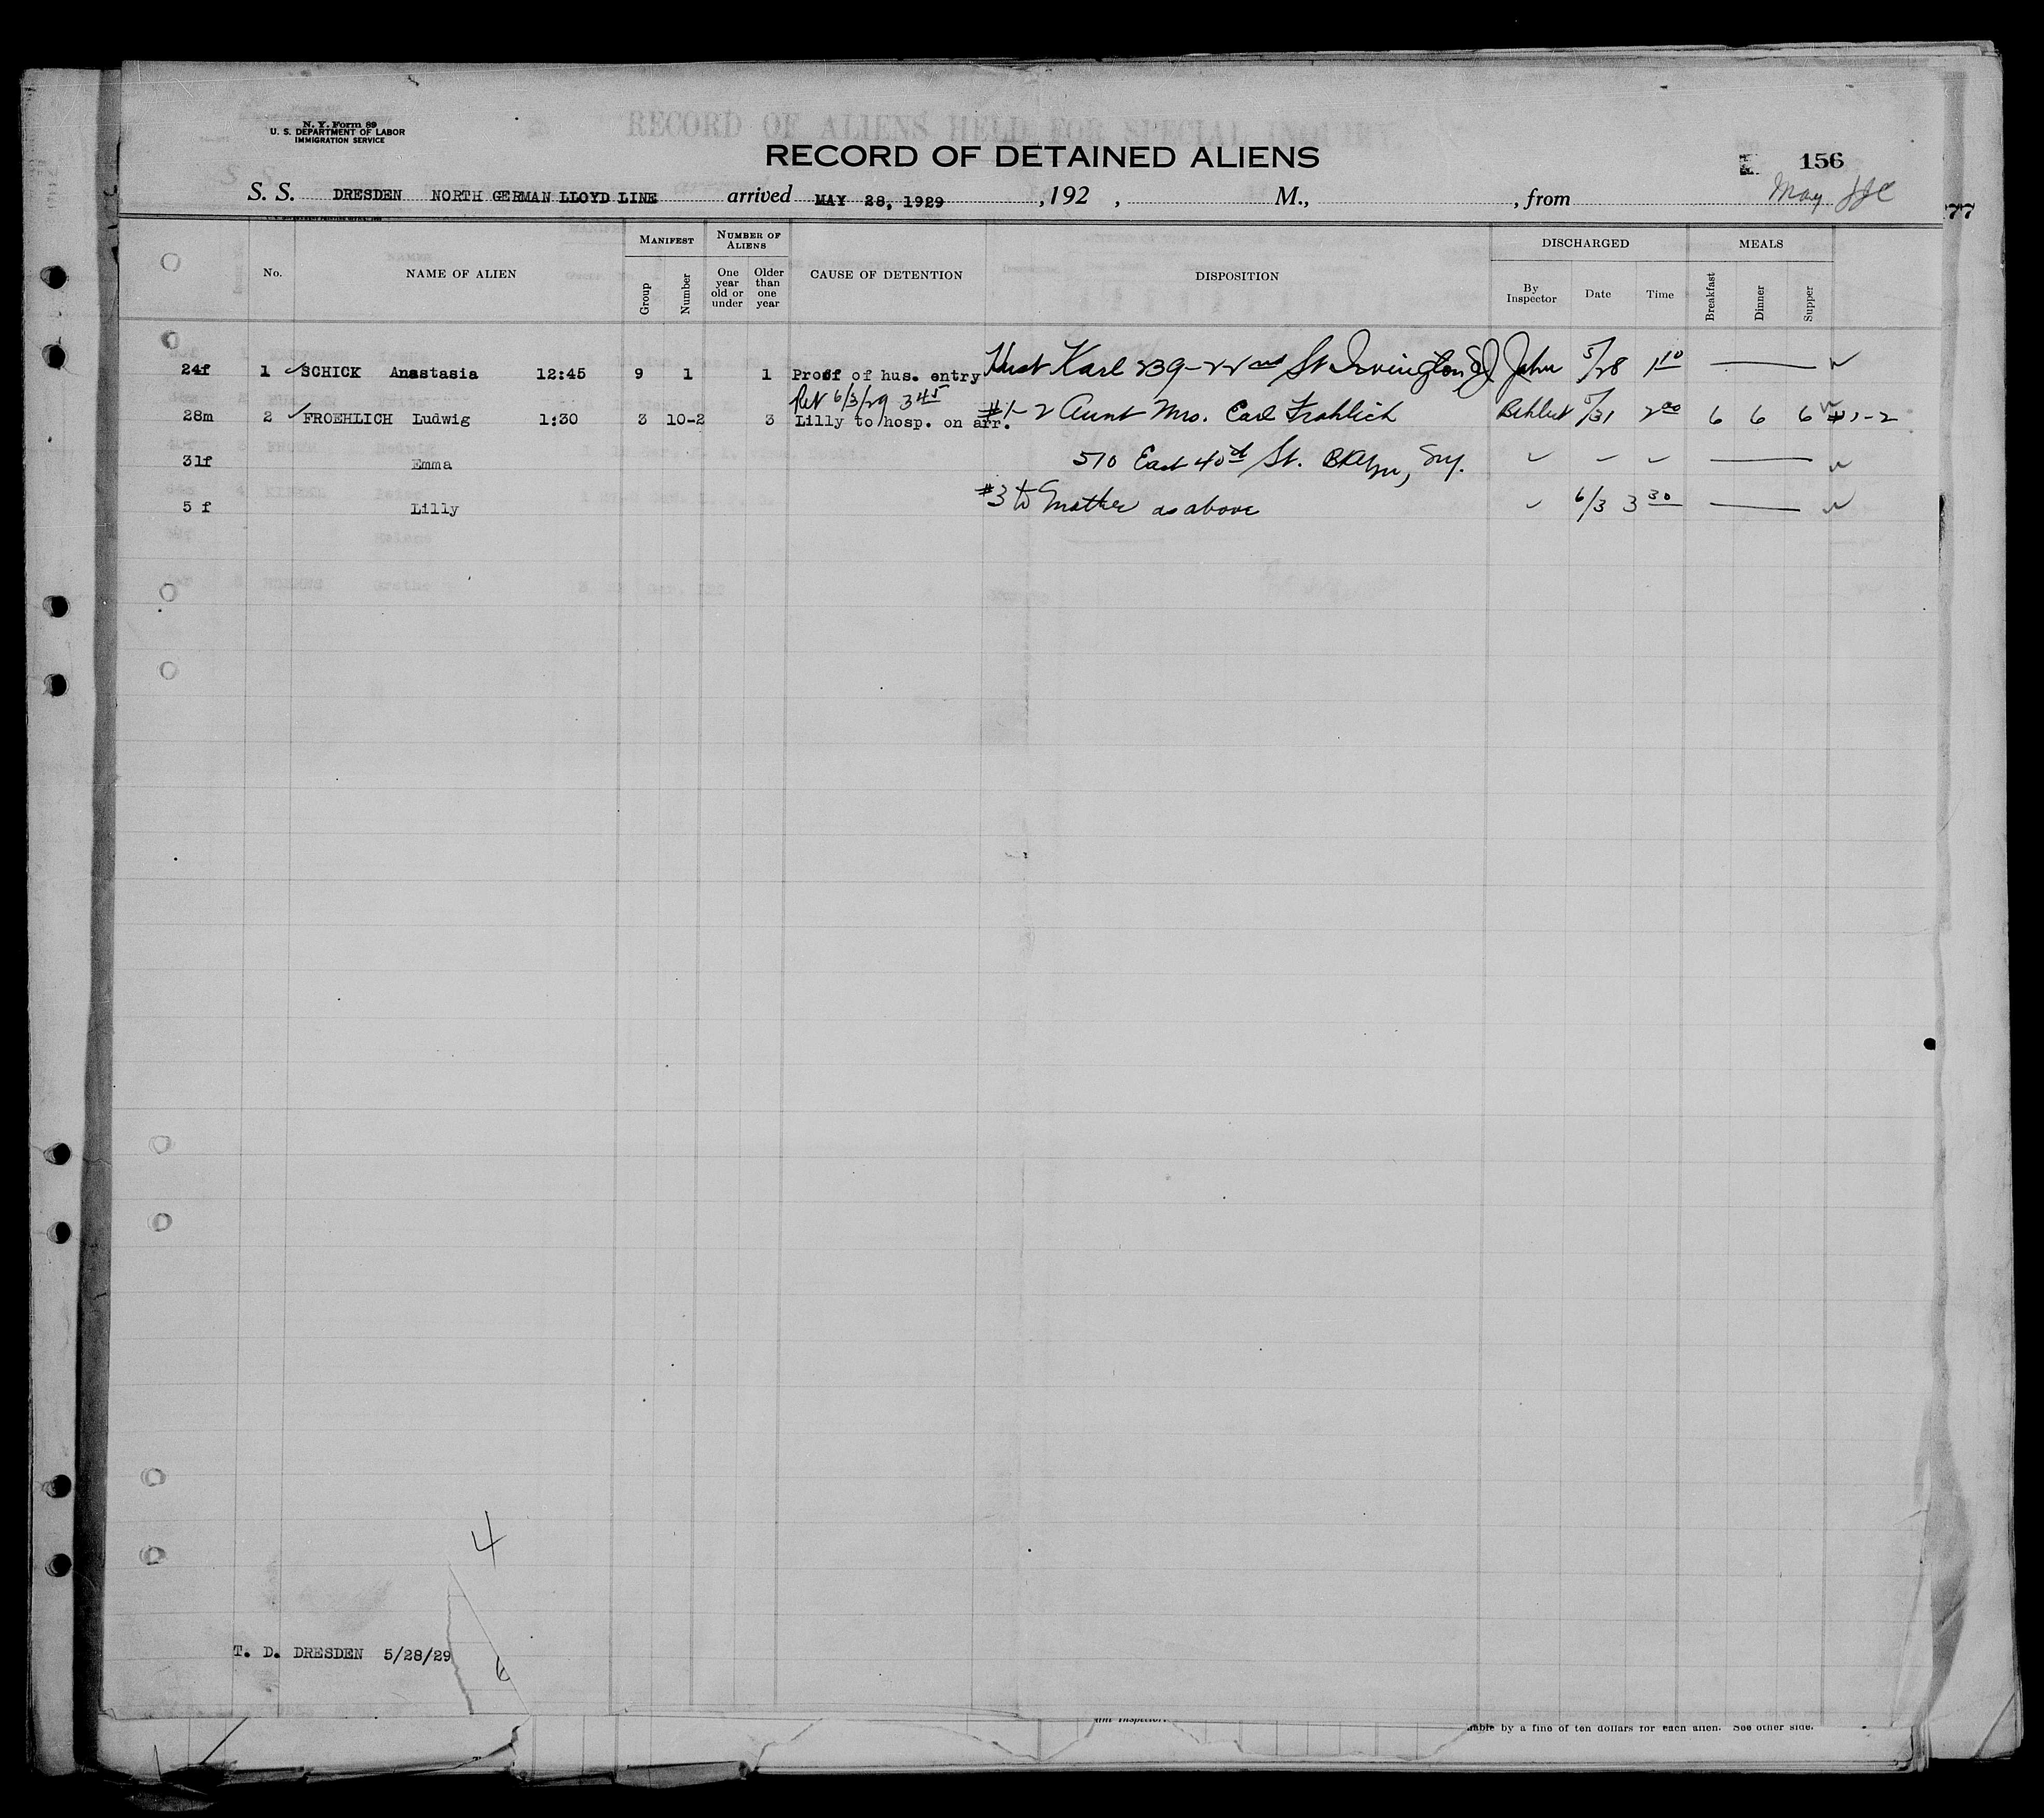 N. Y. Form 89
U. S. DEPARTMENT OF LABOR
IMMIGRATION SERVICE
RECORD OF ALIENS HELD FOR SPECIAL INQUIRY.
RECORD OF DETAINED ALIENS
156
S. S. DRESDEN NORTH GERMAN LLOYD LINE arrived MAY 28, 1929 , 192 , M., , from
May
77
No. NAME OF ALIEN MANIFEST Group Number NUMBER OF ALIENS One year old or under Older than one year CAUSE OF DETENTION DISPOSITION DISCHARGED By Inspector Date Time MEALS Breakfast Dinner Supper
24f 1 ✓ SCHICK Anastasia 12:45 9 1 1 Proof of hus. entry Husb Karl 239-22nd St Irvington NJ John 5/28 1 10 — ✓
Ret 6/3/29 3 45
28m 2 ✓ FROEHLICH Ludwig 1:30 3 10-2 3 Lilly to hosp. on arr. #1-2 Aunt Mrs. Carl Frohlich 5/31 2 00 6 6 6 ✓ #1-2
31f Emma 510 East 40d St. Bklyn, Ny. ✓ – ✓ — ✓
5 f Lilly #3 to Mother as above ✓ 6/3 3 30 — ✓
4
T. D. DRESDEN 5/28/29
6
ant Inspector.
nable by a fine of ten dollars for each alien. See other side.